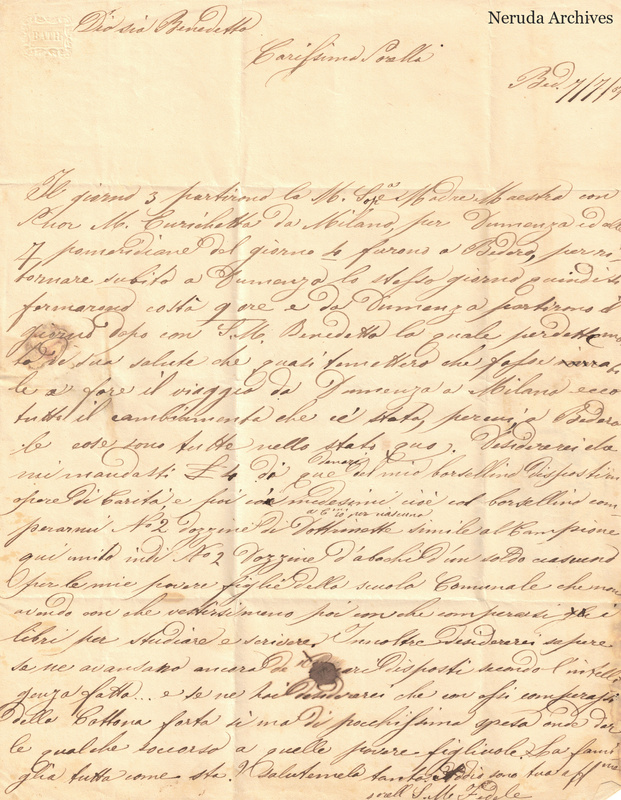 Neruda Archives
BATH
Dio sia Benedetto
Carissima Sorella
Bed. 7/7/
Il giorno 3 partirono la M. Madre Maestra con
Suor M. Enrichetta da Milano, per Dumenza ed alle
7 pomeridiane del giorno 4 furono a Bedero, per ri-
tornare subito a Dumenza lo stesso giorno quindi si
fermarono costà 9 ore e da Dumenza partirono il
giorno dopo con S. M. Benedetta la quale
di sua salute che quasi temettero che fosse
le a fare il viaggio da Dumenza a Milano ecco
tutto il cambiamento che c'è stato, a Bedero
le cose sono tutte nello stato quo. Desidererei che
mi mandasti £ 4 di que' denari del mio borsellino disposti in
opere di Carità e poi col borsellino com-
perarmi No 2 dozzine di simile al Campione
qui unito indi No 2 Dozzine d'abachi d'un soldo ciascuno
per le mie povere figlie della scuola Comunale che non
avendo con che vestirsi meno poi con che comperarsi i
libri per studiare e scrivere. Inoltre desidererei sapere
se ne avanzano ancora disposti secondo l'intelli-
genza fatta.. e se ne hai che con essi comperassi
della Cottona forte sì ma di pocchissima spesa onde dar
le qualche soccorso a quelle povere figliuole. La fami-
glia tutta come sta? Salutemela tanto. Addio sono tua aff
sorell S. M. Fedele